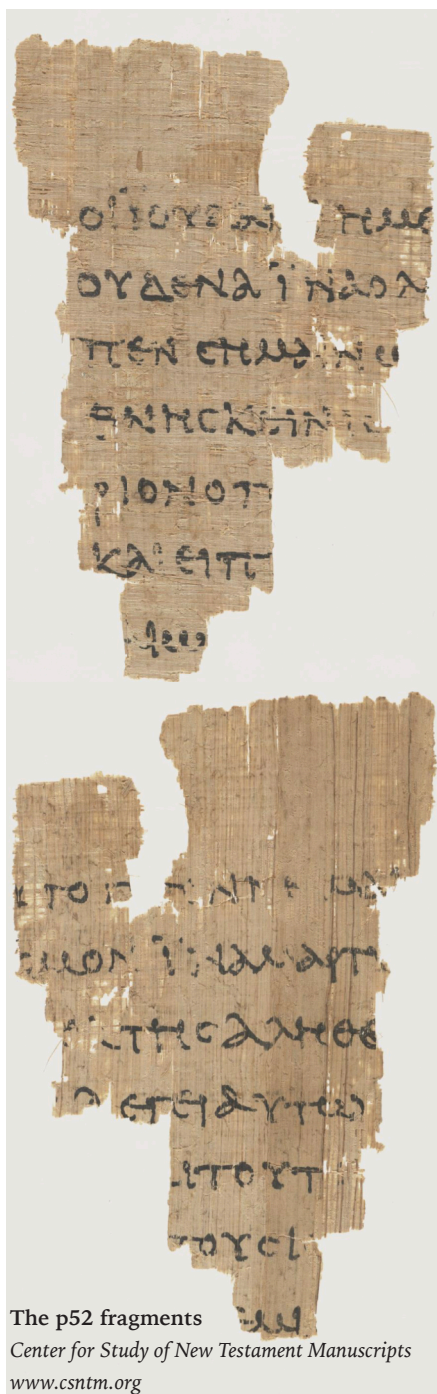 ΟΙΪΟΥΔΑΙ ΗΜΕ
ΟΥΔΕΝΑΪΝΑΟΛ
ΠΕΝϹΗΜΑΙΝΩ
ΘΝΗϹΚΕΙΝΙϹ
ΡΙΟΝΟΠ
ΚΑΙΕΙΠ
ΑΙΩ
ΤΟΓ
ϹΜΟΝΪΝΑΜΑΡΤΥ
ΤΗϹΑΛΗΘΕ
ΛΕΓΕΙΑΥΤΩ
ΑΙΤΟΥΤ
ΤΟΥϹΙ
ΕΜΙ
The p52 fragments
Center for Study of New Testament Manuscripts
www.csntm.org